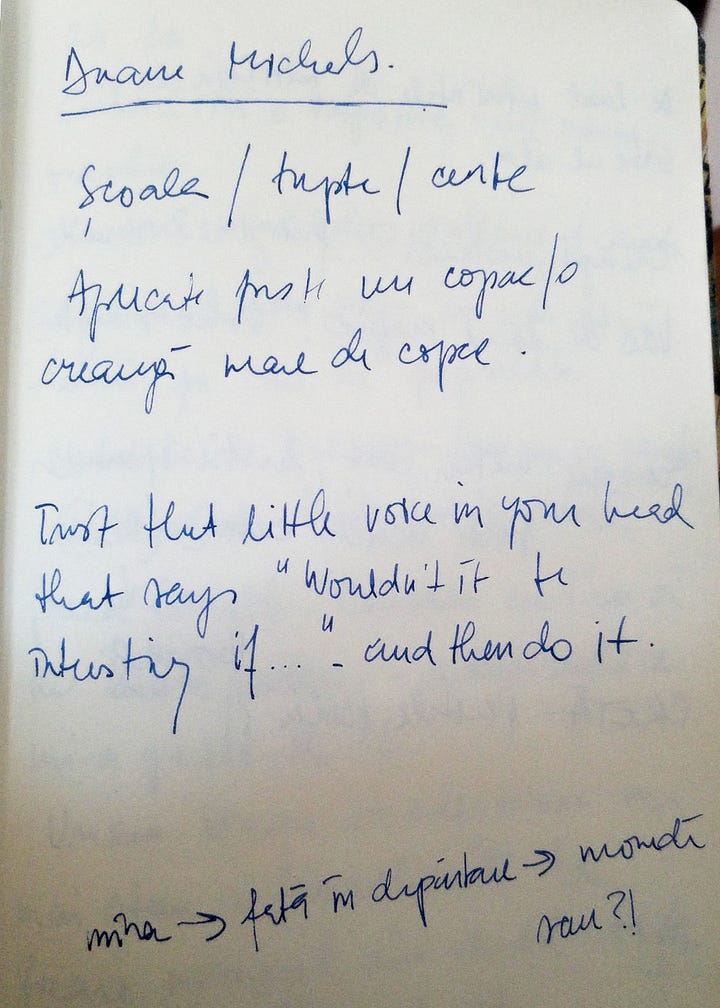 Duane Michals.
Școala / trepte / curte
Aplicate peste un copac/o
creangă mare de copac.
Trust that little voice in your head
that says "Wouldn't it be
interesting if..." - and then do it.
mîna → fată în depărtare →
sau?!